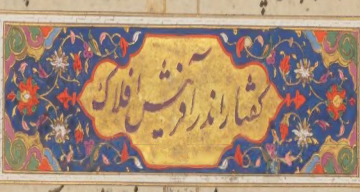 گفتار اندر آفرینش افلاک